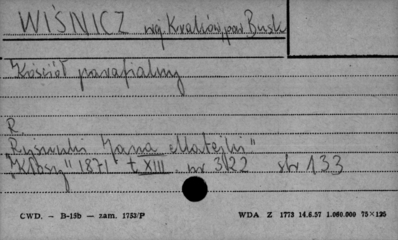 WIŚNICZ woj. Kraków, pow. Busk
Kościół parafialny
R
Rysunki Jana Matejki"
"Kłosy" 1871 t XIII. nr 322 str 133
CWD. - B-15b - zam. 1753/P WDA Z 1773 14.6.57 1.060.000 75×125